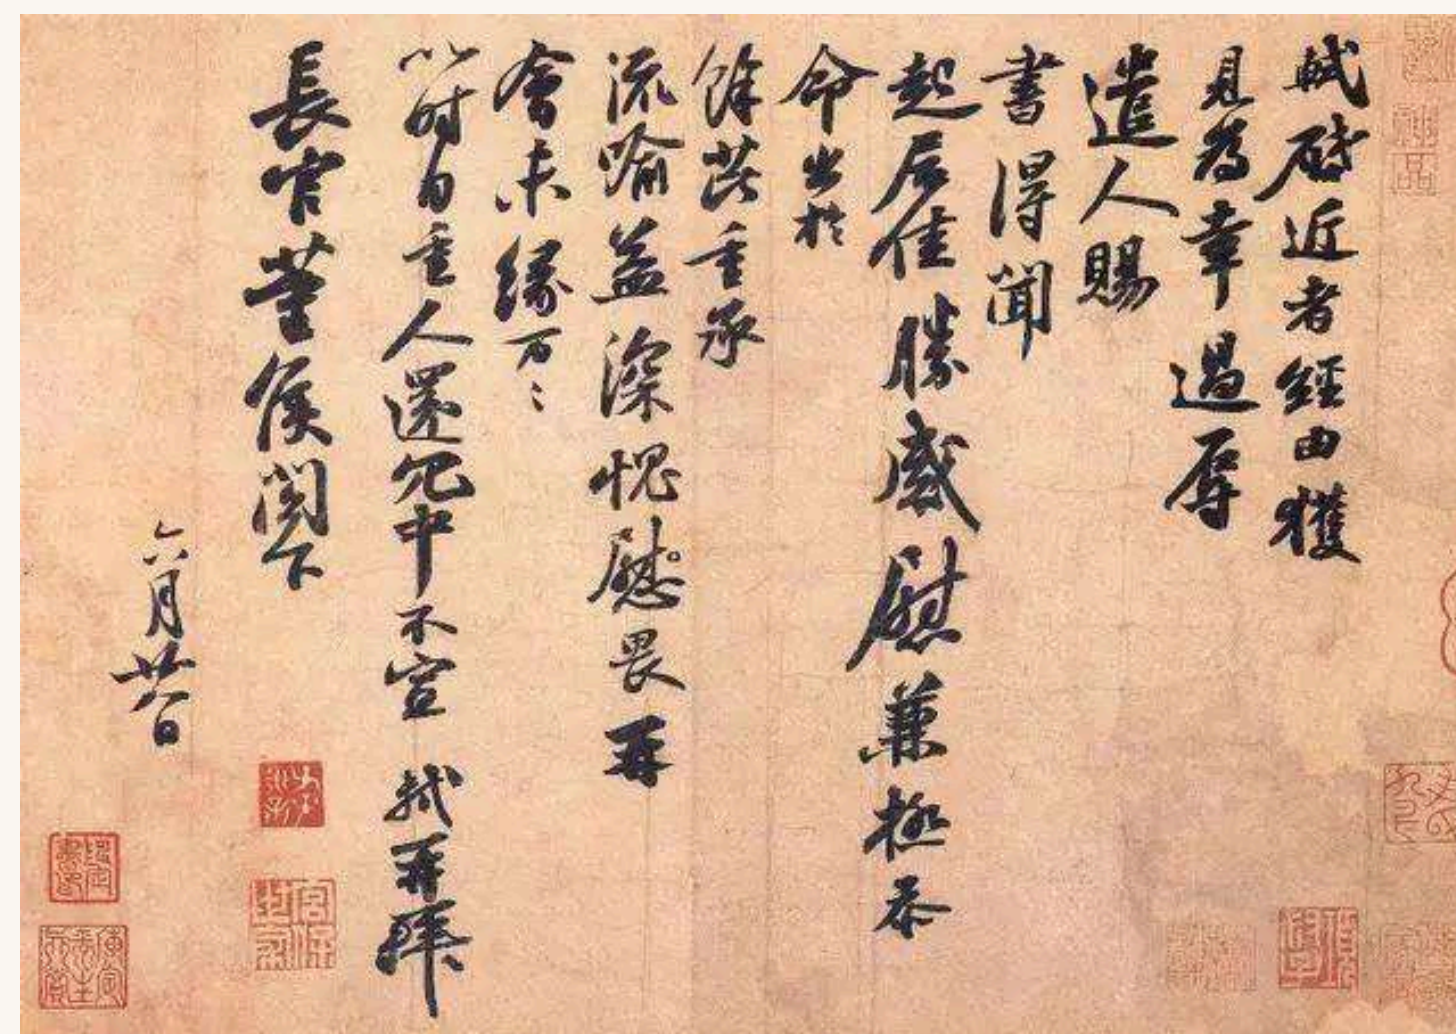 神品
軾啓近者經由獲
見為幸過辱
遣人賜
書得聞
起居佳勝感慰兼極忝
命出於
餘芘重承
流喻益深愧慰畏再
會未緣万〻
以時自重人還冗中不宣 軾再拜
長官董侯閣下
六月廿八日